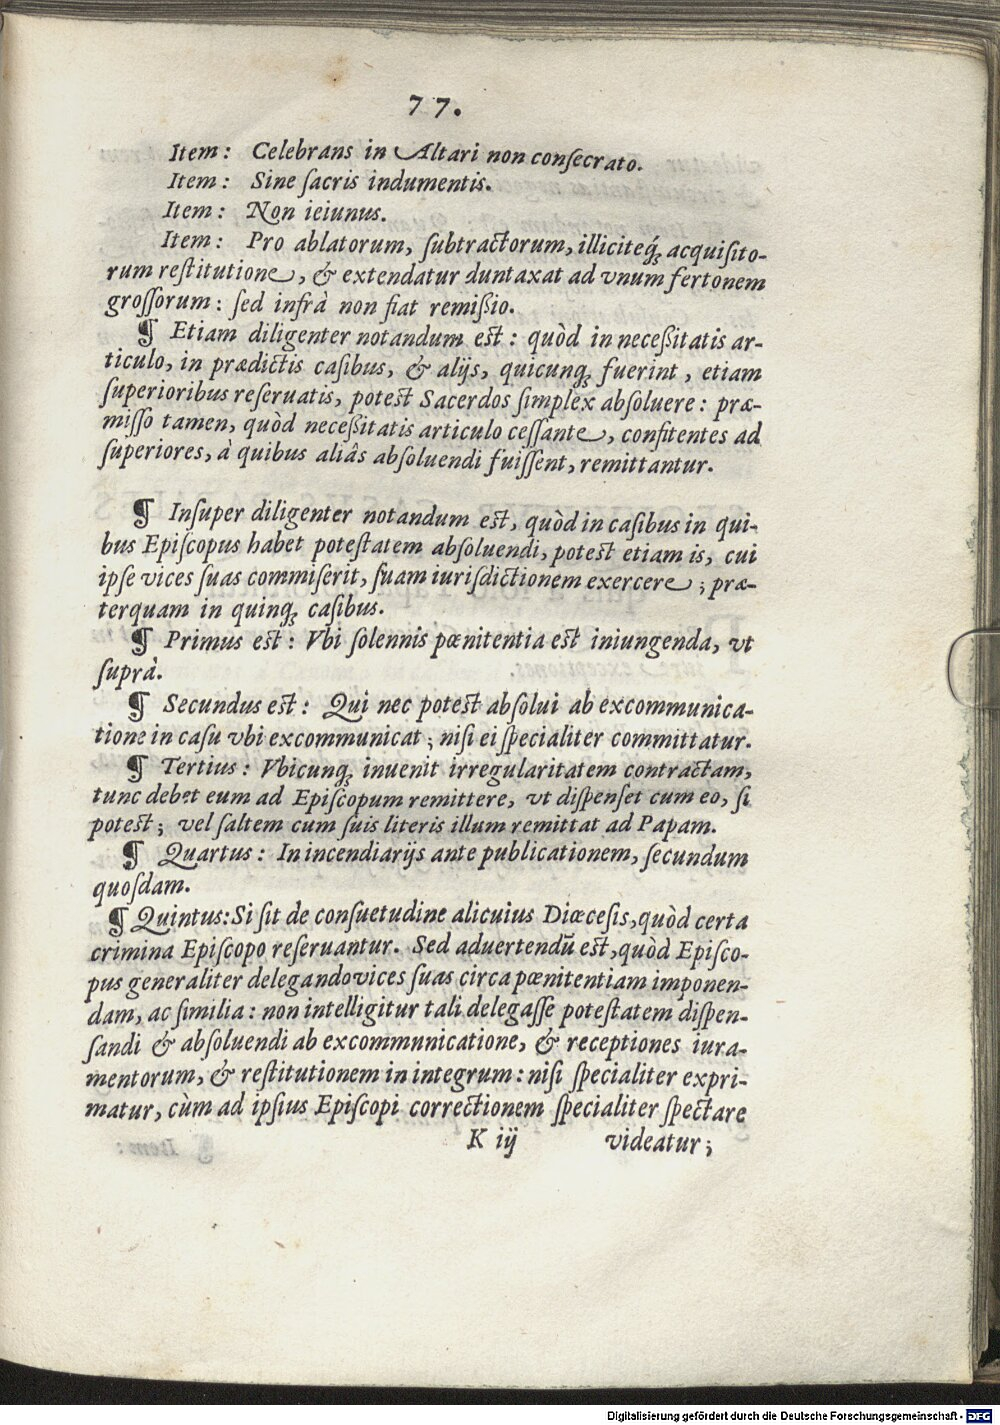 77.
Item: Celebrans in Altari non conſecrato.
Item: Sine ſacris indumentis.
Item: Non ieiunus.
Item: Pro ablatorum, ſubtractorum, illiciteq́; acquiſito-
rum reſtitutione, & extendatur duntaxat ad vnum fertonem
groſſorum: ſed infrà non fiat remißio.
¶ Etiam diligenter notandum est: quòd in neceßitatis ar-
ticulo, in prædictis caſibus, & alijs, quicunq; fuerint, etiam
ſuperioribus reſeruatis, potest Sacerdos ſimplex abſoluere: præ-
miſſo tamen, quòd neceßitatis articulo ceſſante, confitentes ad
ſuperiores, à quibus aliâs abſoluendi fuiſſent, remittantur.
¶ Inſuper diligenter notandum est, quòd in caſibus in qui-
bus Epiſcopus habet poteſtatem abſoluendi, potest etiam is, cui
ipſe vices ſuas commiſerit, ſuam iuriſdictionem exercere; præ-
terquam in quinq; caſibus.
¶ Primus est: Vbi ſolennis pœnitentia est iniungenda, vt
ſuprà.
¶ Secundus est: Qui nec potest abſolui ab excommunica-
tione in caſu vbi excommunicat; niſi ei ſpecialiter committatur.
¶ Tertius: Vbicunq; inuenit irregularitatem contractam,
tunc debet eum ad Epiſcopum remittere, vt diſpenſet cum eo, ſi
potest; vel ſaltem cum ſuis literis illum remittat ad Papam.
¶ Quartus: In incendiarijs ante publicationem, ſecundum
quoſdam.
¶ Quintus: Si ſit de conſuetudine alicuius Diœceſis, quòd certa
crimina Epiſcopo reſeruantur. Sed aduertendū est, quòd Epiſco-
pus generaliter delegando vices ſuas circa pœnitentiam imponen-
dam, ac ſimilia: non intelligitur tali delegaſſe poteſtatem diſpen-
ſandi & abſoluendi ab excommunicatione, & receptiones iura-
mentorum, & reſtitutionem in integrum: niſi ſpecialiter expri-
matur, cùm ad ipſius Epiſcopi correctionem ſpecialiter ſpectare
K iij videatur;
Digitalisierung gefördert durch die Deutsche Forschungsgemeinschaft - DFG